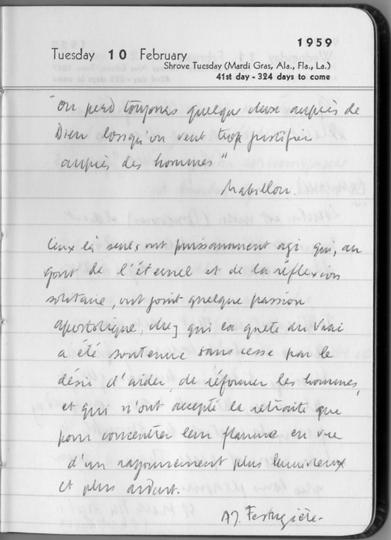 1959
Tuesday 10 February
Shrove Tuesday (Mardi Gras, Ala., Fla., La.)
41st day - 324 days to come
"On perd toujours quelque chose auprès de
Dieu lorsqu'on veut trop justifier
auprès des hommes"
Mabillon.
Ceux là seuls ont puissamment agi qui, au
goût de l'éternel et de la réflexion
solitaire, ont joint quelque passion
apostolique, chez qui la quête du Vrai
a été soutenue sans cesse par le
désir d'aider, de réformer les hommes,
et qui n'ont accepté la retraite que
pour concentrer leur flamme en vue
d'un rayonnement plus lumineux
et plus ardent.
A.J. Festugière.